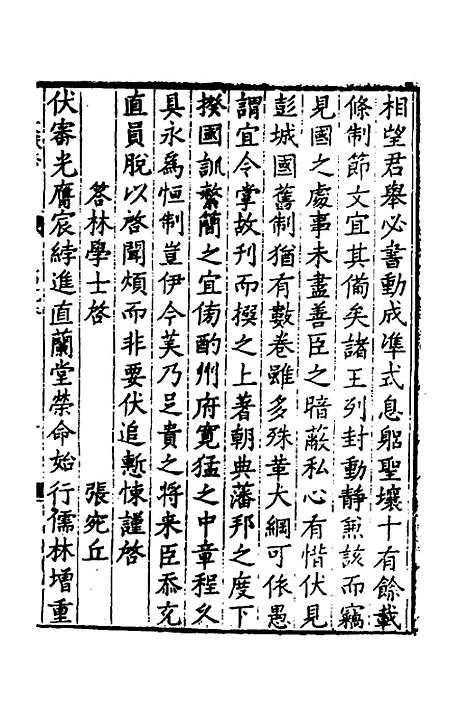 相望君舉必書動成準式息躬聖壤十有餘載
條制節文宜其備矣諸王列封動靜兼該而竊
見國之處事未盡善臣之暗蔽私心有惛伏見
彭城國舊制猶有數卷雖多殊華大綱可依愚
謂宜令掌故刊而撰之上著朝典藩邦之度下
揆國訓繁簡之宜傍酌州府寛猛之中章程久
具永爲恒制豈伊今芙乃足貴之將来臣忝充
直員脫以啓聞煩而非要伏追慙悚謹啓
荅林學士啓 張宛丘
伏審光膺宸綍進直蘭堂榮命始行儒林増重